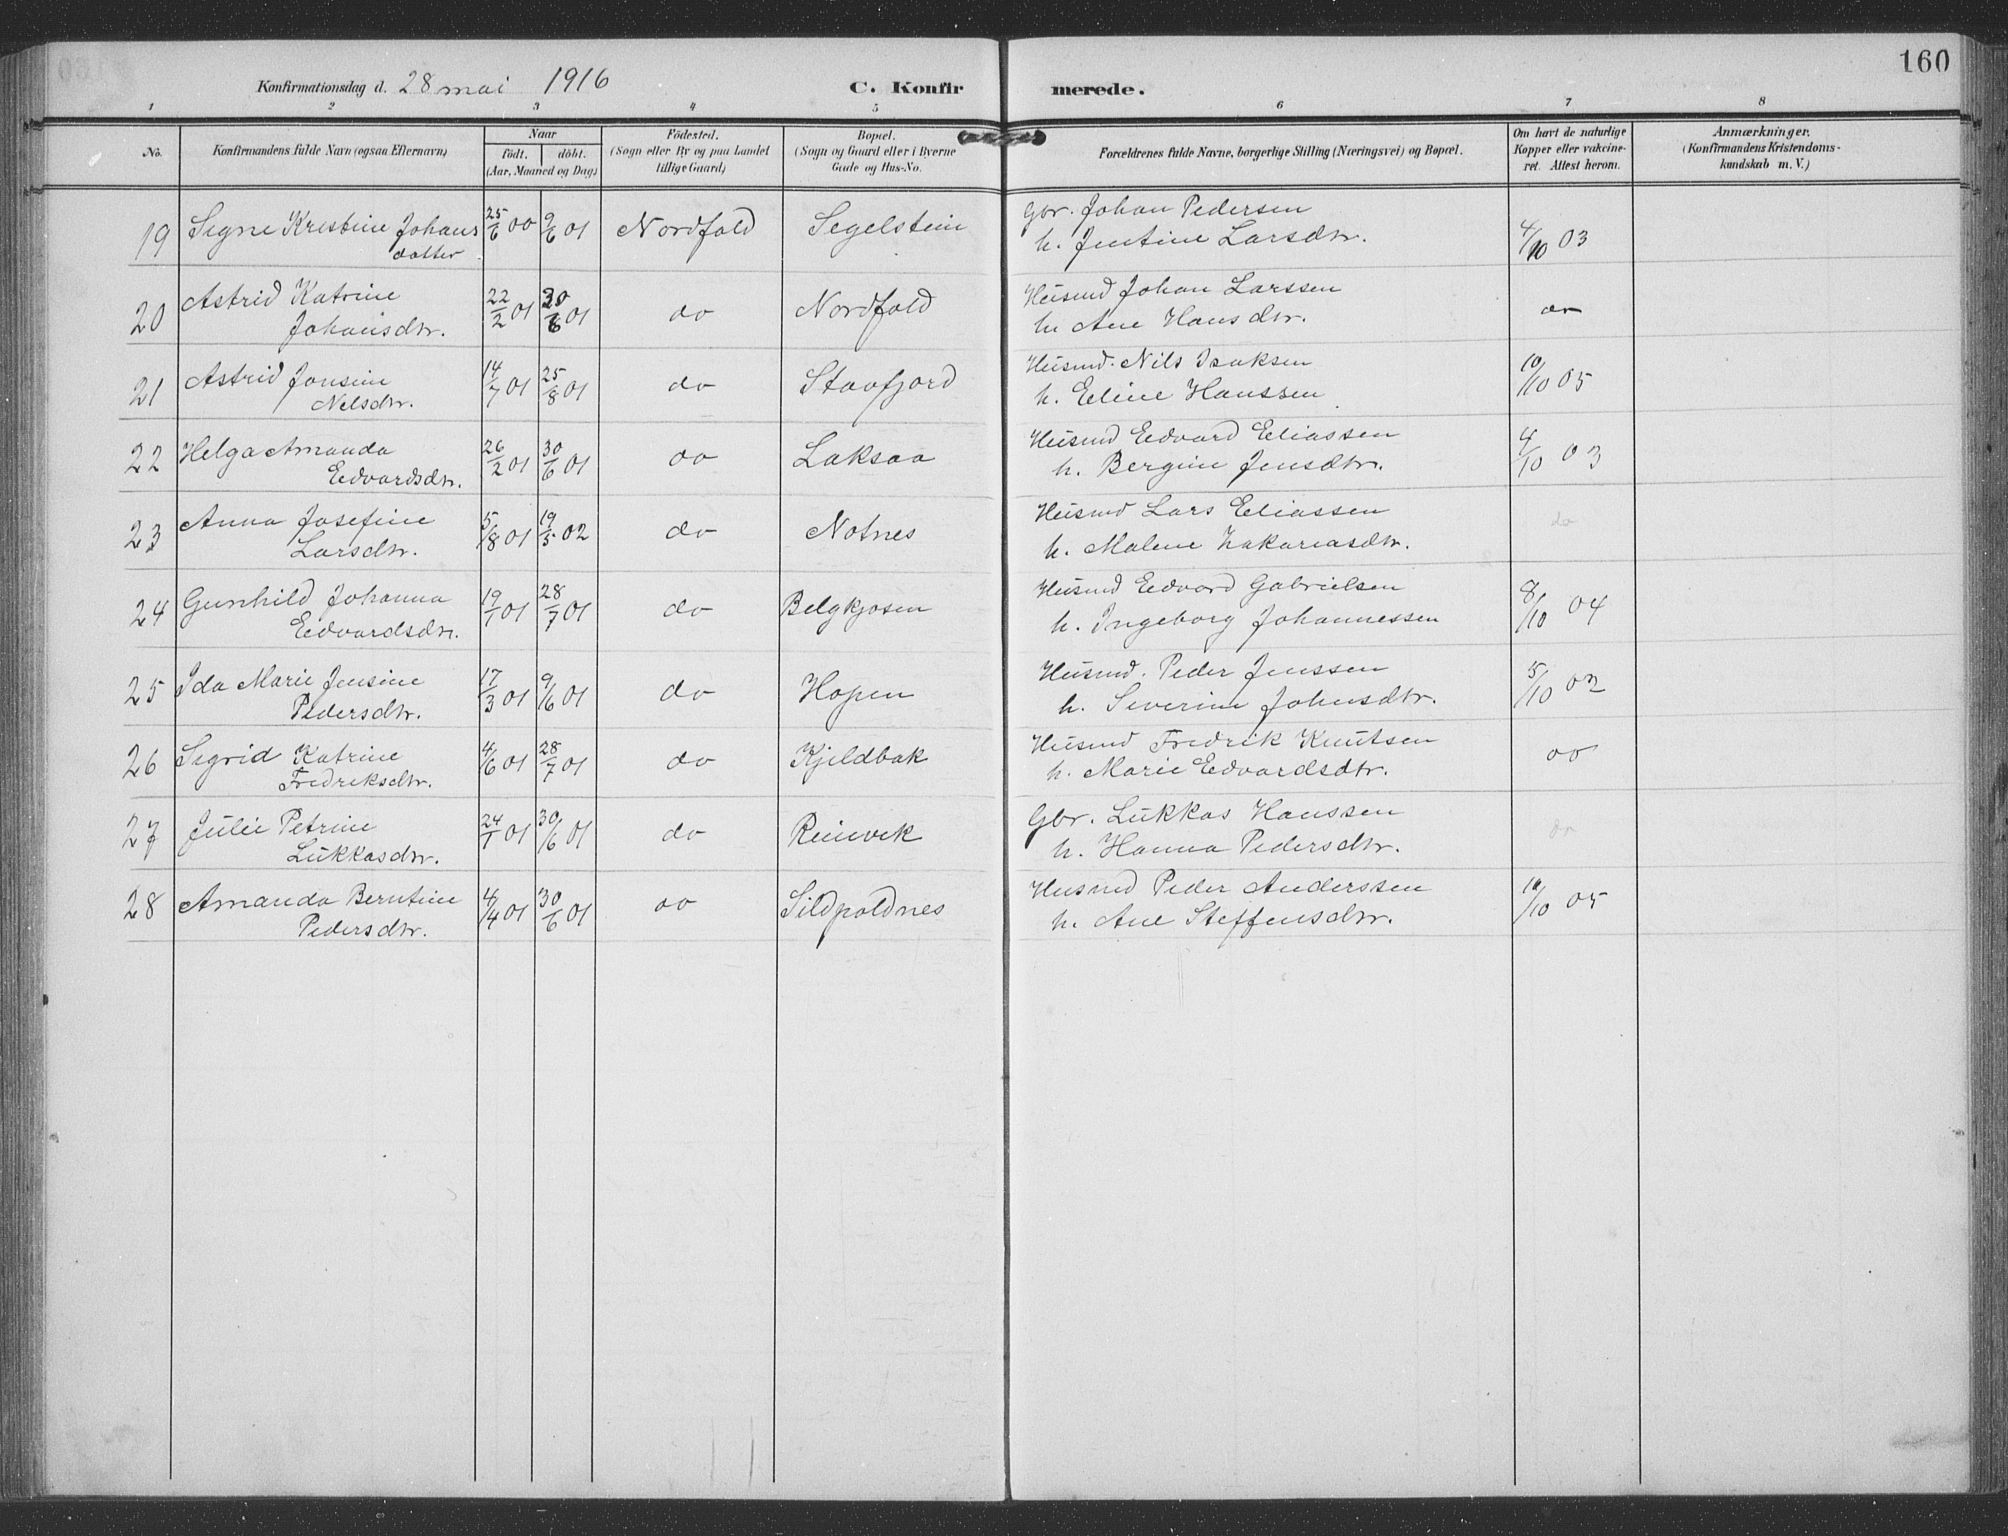 160
Konfirmationsdag d. 28 mai 1916 C. Konfirmerede.
1 2 3 4 5 6 7 8
No. Konfirmandens fulde Navn (ogsaa Efternavn) Naar födt. döbt. (Aar, Maaned og Dag) Födested. (Sogn eller By og paa Landet tillige Gaard) Bopæl. (Sogn og Gaard eller i Byerne Gade og Hus-No. Forældrenes fulde Navne, borgerlige Stilling (Næringsvei) og Bopæl. Om havt de naturlige Kopper eller vakcineret. Attest herom. Anmærkninger. (Konfirmandens Kristendomskundskab m. V.)
19 Signe Kristine Johans 25/6 00 9/6 01 Nordfold Segelstein Gbr. Johan Pedersen
datter h. Jentine Larsdtr. 4/10 03
20 Astrid Katrine 22/2 01 30/6 01 do Nordfold Husmd Johan Larssen do
Johansdtr. h. Ane Hansdtr.
21 Astrid Jonsine 14/7 01 25/8 01 do Staofjord Husmd. Nils Isaksen 10/10 05
Nilsdtr. h. Eline Hanssen
22 Helga Amanda 26/2 01 30/6 01 do Laksaa Husmd Edvard Eliassen 4/10 03
Edvardsdtr. h. Bergine Jensdtr.
23 Anna Josefine 5/8 01 19/5 02 do Notnes Husmd Lars Eliassen do
Larsdtr. h. Malene Zakariasdtr.
24 Gunhild Johanna 19/1 01 28/7 01 do Belgkjosen Husmd Edvard Gabrielsen 8/10 04
Edvardsdtr. h. Ingeborg Johannessen
25 Ida Marie Jensine 17/3 01 9/6 01 do Hopen Husmd. Peder Jenssen 5/10 02
Pedersdtr. h. Severine Johnsdtr.
26 Sigrid Katrine 4/6 01 28/7 01 do Kjeldbak Husmd Fredrik Knutsen do
Fredriksdtr. h. Marie Edvardsdtr.
27 Julie Petrine 24/1 01 30/6 01 do Reinvik Gbr. Lukkas Hanssen do
Lukkasdtr. h. Hanna Pedersdtr.
28 Amanda Berntine 4/4 01 30/6 01 do Sildpoldnes Husmd Peder Anderssen 10/10 05
Pedersdtr. h. Ane Steffensdtr.